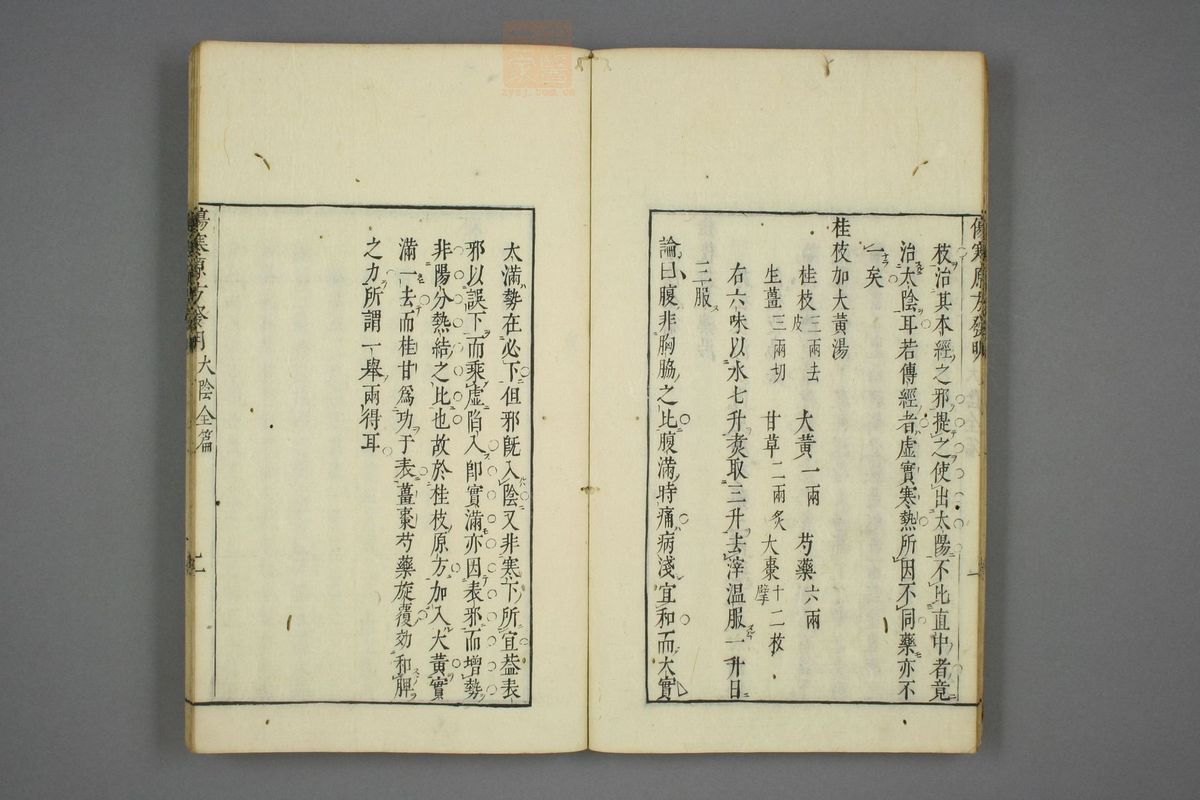 傷寒原方發明
枝治其本經之邪提之使出太陽不比直中者竟
治太陰耳若傳經者虛實寒熱所因不同藥亦不
一矣
桂枝加大黃湯
桂枝三兩去皮 大黃一兩 芍藥六兩
生薑三兩切 甘草二兩炙 大棗十二枚擘
右六味以水七升煑取三升去滓溫服一升日
三服
論曰腹非胸脇之比腹滿時痛病淺宜和而大實
太滿勢在必下但邪既入陰又非寒下所宜葢表
邪以誤下而乘虛陷入卽實滿亦因表邪而增勢
非陽分熱結之比也故於桂枝原方加入大黃實
滿一去而桂甘爲功于表薑棗芍藥旋覆効和脾
之力所謂一舉兩得耳
傷寒原方發明 太陰全篇
zysj.com.cn